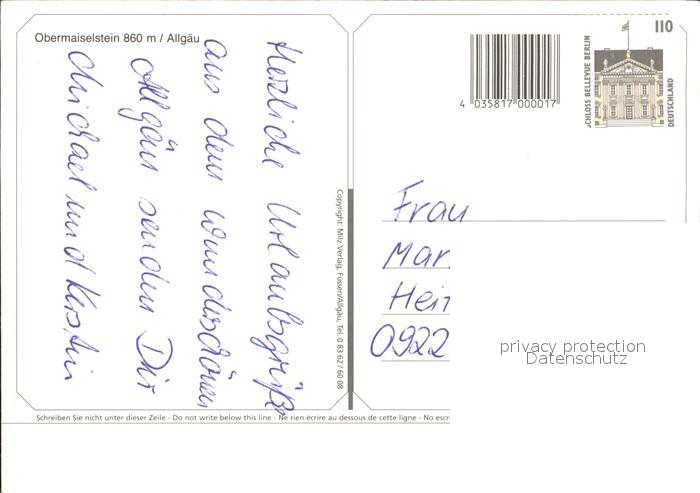 Obermaiselstein 860 m / Allgäu
Herzliche Urlaubsgrüße
aus dem wunderschönen
Allgäu senden Dir
Michael und Kerstin
Copyright: Milz Verlag, Füssen/Allgäu, Tel. 0 83 62 / 60 08
4 035817 000017
SCHLOSS BELLEVUE BERLIN
110
DEUTSCHLAND
Frau
Mar
Hein
0922
privacy protection
Datenschutz
Schreiben Sie nicht unter dieser Zeile - Do not write below this line - Ne rien écrire au dessous de cette ligne - No escr